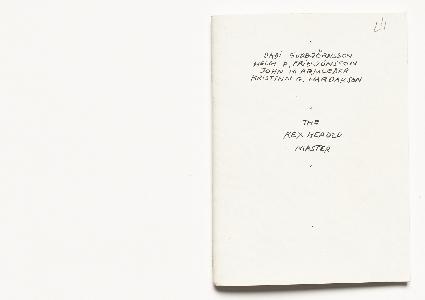 DAÐI GUÐBJÖRNSSON
HELGI Þ. FRIÐJÓNSSON
JOHN M ARMLEDER
KRISTINN G. HARÐARSON
THE
REX HEROLD
MASTER